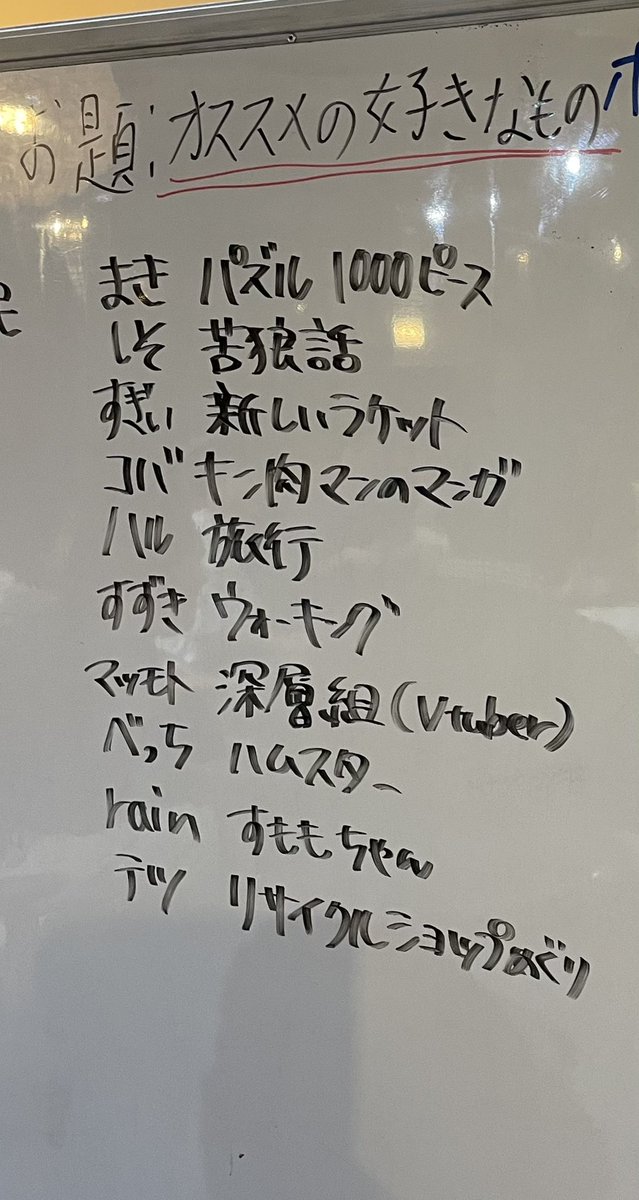 お題:オススメの好きなもの
まさ パズル 1000ピース
しそ 苦狼話
すぎい 新しいラケット
コバ キン肉マンのマンガ
ハル 旅行
すずき ウォーキング
マツモト 深層組(Vtuber)
べっち ハムスター
rain すももちゃん
テツ リサイクルショップめぐり